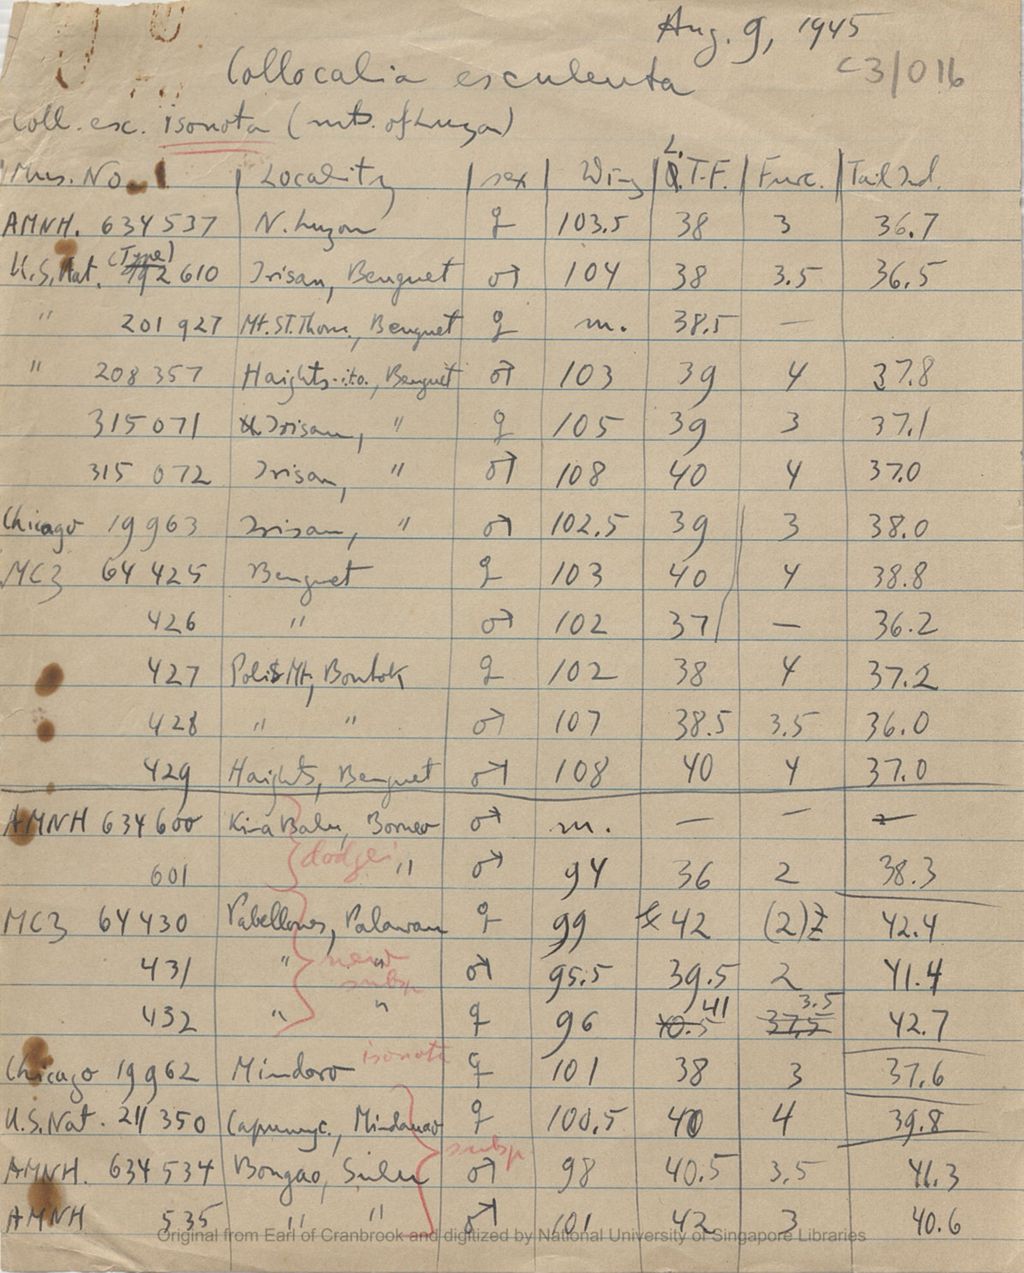 Aug. 9, 1945
C3/016
Collocalia esculenta
Coll. esc. isonota (mts. of Luzon)
Mus. No. | Locality | sex | Wing | L.T.-F. | Furc. | Tail Ind.
AMNH. 634 537 N. Luzon ♀ 103.5 38 3 36.7
U.S. Nat. (Type) 192 610 Irisan, Benguet ♂ 104 38 3.5 36.5
" 201 927 Mt. St. Thom., Benguet ♀ m. 38.5 —
" 208 357 Haights-ito., Benguet ♂ 103 39 4 37.8
315 071 Irisan, " ♀ 105 39 3 37.1
315 072 Irisan, " ♂ 108 40 4 37.0
Chicago 19 963 Irisan, " ♂ 102.5 39 3 38.0
MCZ 64 425 Benguet ♀ 103 40 4 38.8
426 " ♂ 102 37 — 36.2
427 Polis Mt, Bontok ♀ 102 38 4 37.2
428 " " ♂ 107 38.5 3.5 36.0
429 Haights, Benguet ♂ 108 40 4 37.0
AMNH 634 600 Kina Balu, Borneo ♂ m. — — —
601 dodgei " ♂ 94 36 2 38.3
MCZ 64 430 Pabellones, Palawan ♀ 99 42 (2) 42.4
431 " new " ♂ 95.5 39.5 2 41.4
subsp
432 " " ♀ 96 40.5 41 37.5 3.5 42.7
isonota
Chicago 19 962 Mindoro ♀ 101 38 3 37.6
U.S. Nat. 211 350 Mindanao ♀ 100.5 40 4 39.8
subsp
AMNH. 634 534 Bongao, Sulu ♂ 98 40.5 3.5 41.3
AMNH 535 " " ♂ 101 42 3 40.6
Original from Earl of Cranbrook and digitized by National University of Singapore Libraries